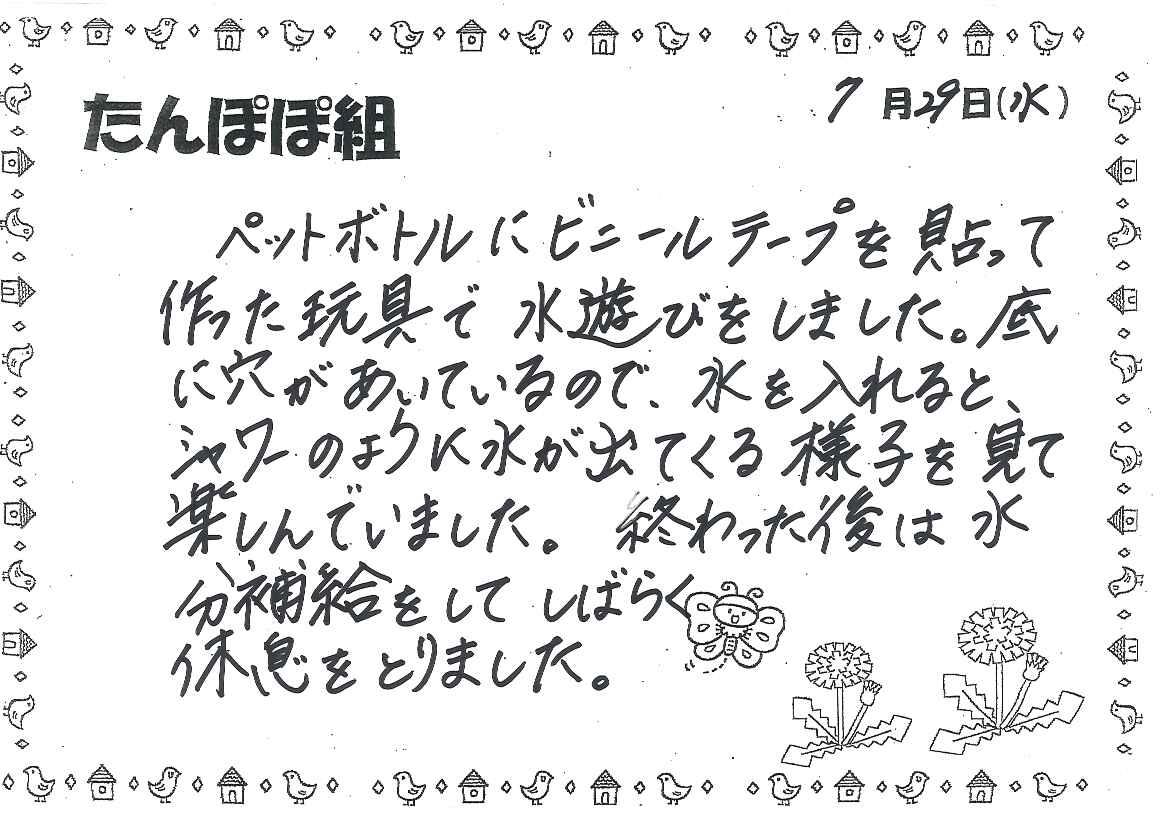 たんぽぽ組
7月29日(水)
ペットボトルにビニールテープを貼って
作った玩具で水遊びをしました。底
に穴があいているので、水を入れると、
シャワーのように水が出てくる様子を見て
楽しんでいました。終わった後は水
分補給をしてしばらく
休息をとりました。